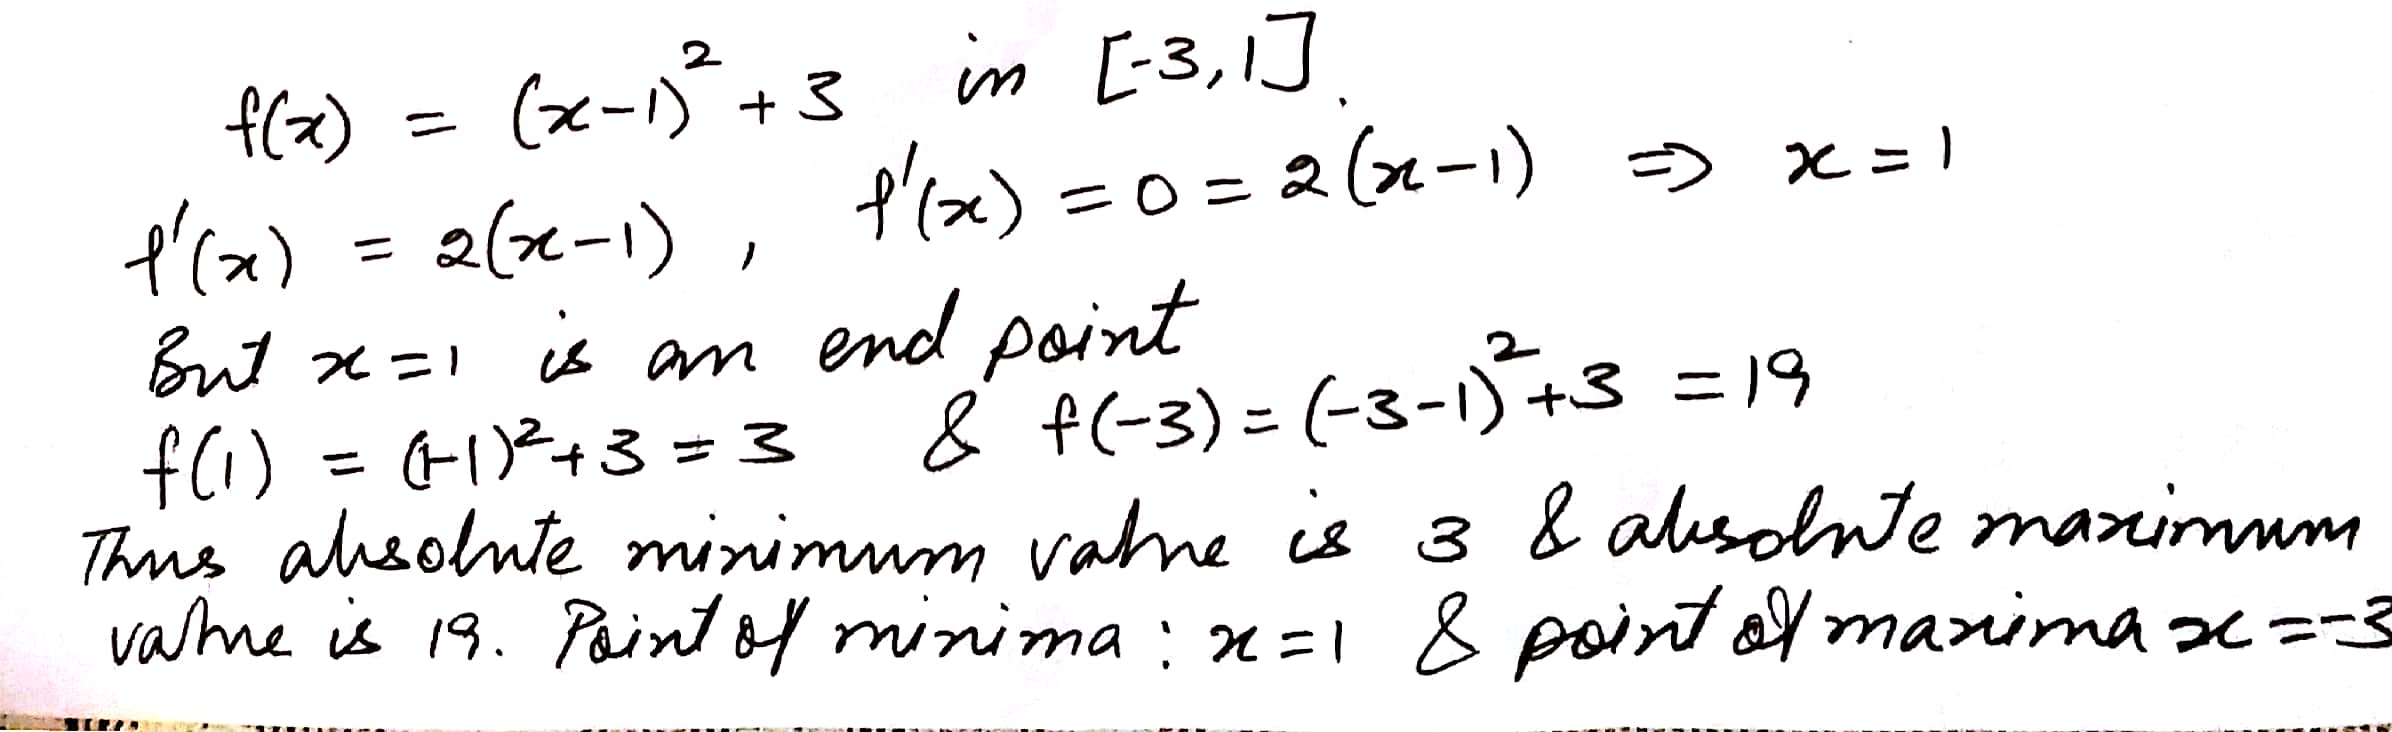 f(x) = (x-1)² + 3 in [-3,1].
f'(x) = 2(x-1), f'(x) = 0 = 2(x-1) ⇒ x = 1
But x=1 is an end point
f(1) = (1-1)²+3 = 3 & f(-3) = (-3-1)²+3 = 19
Thus absolute minimum value is 3 & absolute maximum
value is 19. Point of minima : x=1 & point of maxima x=-3